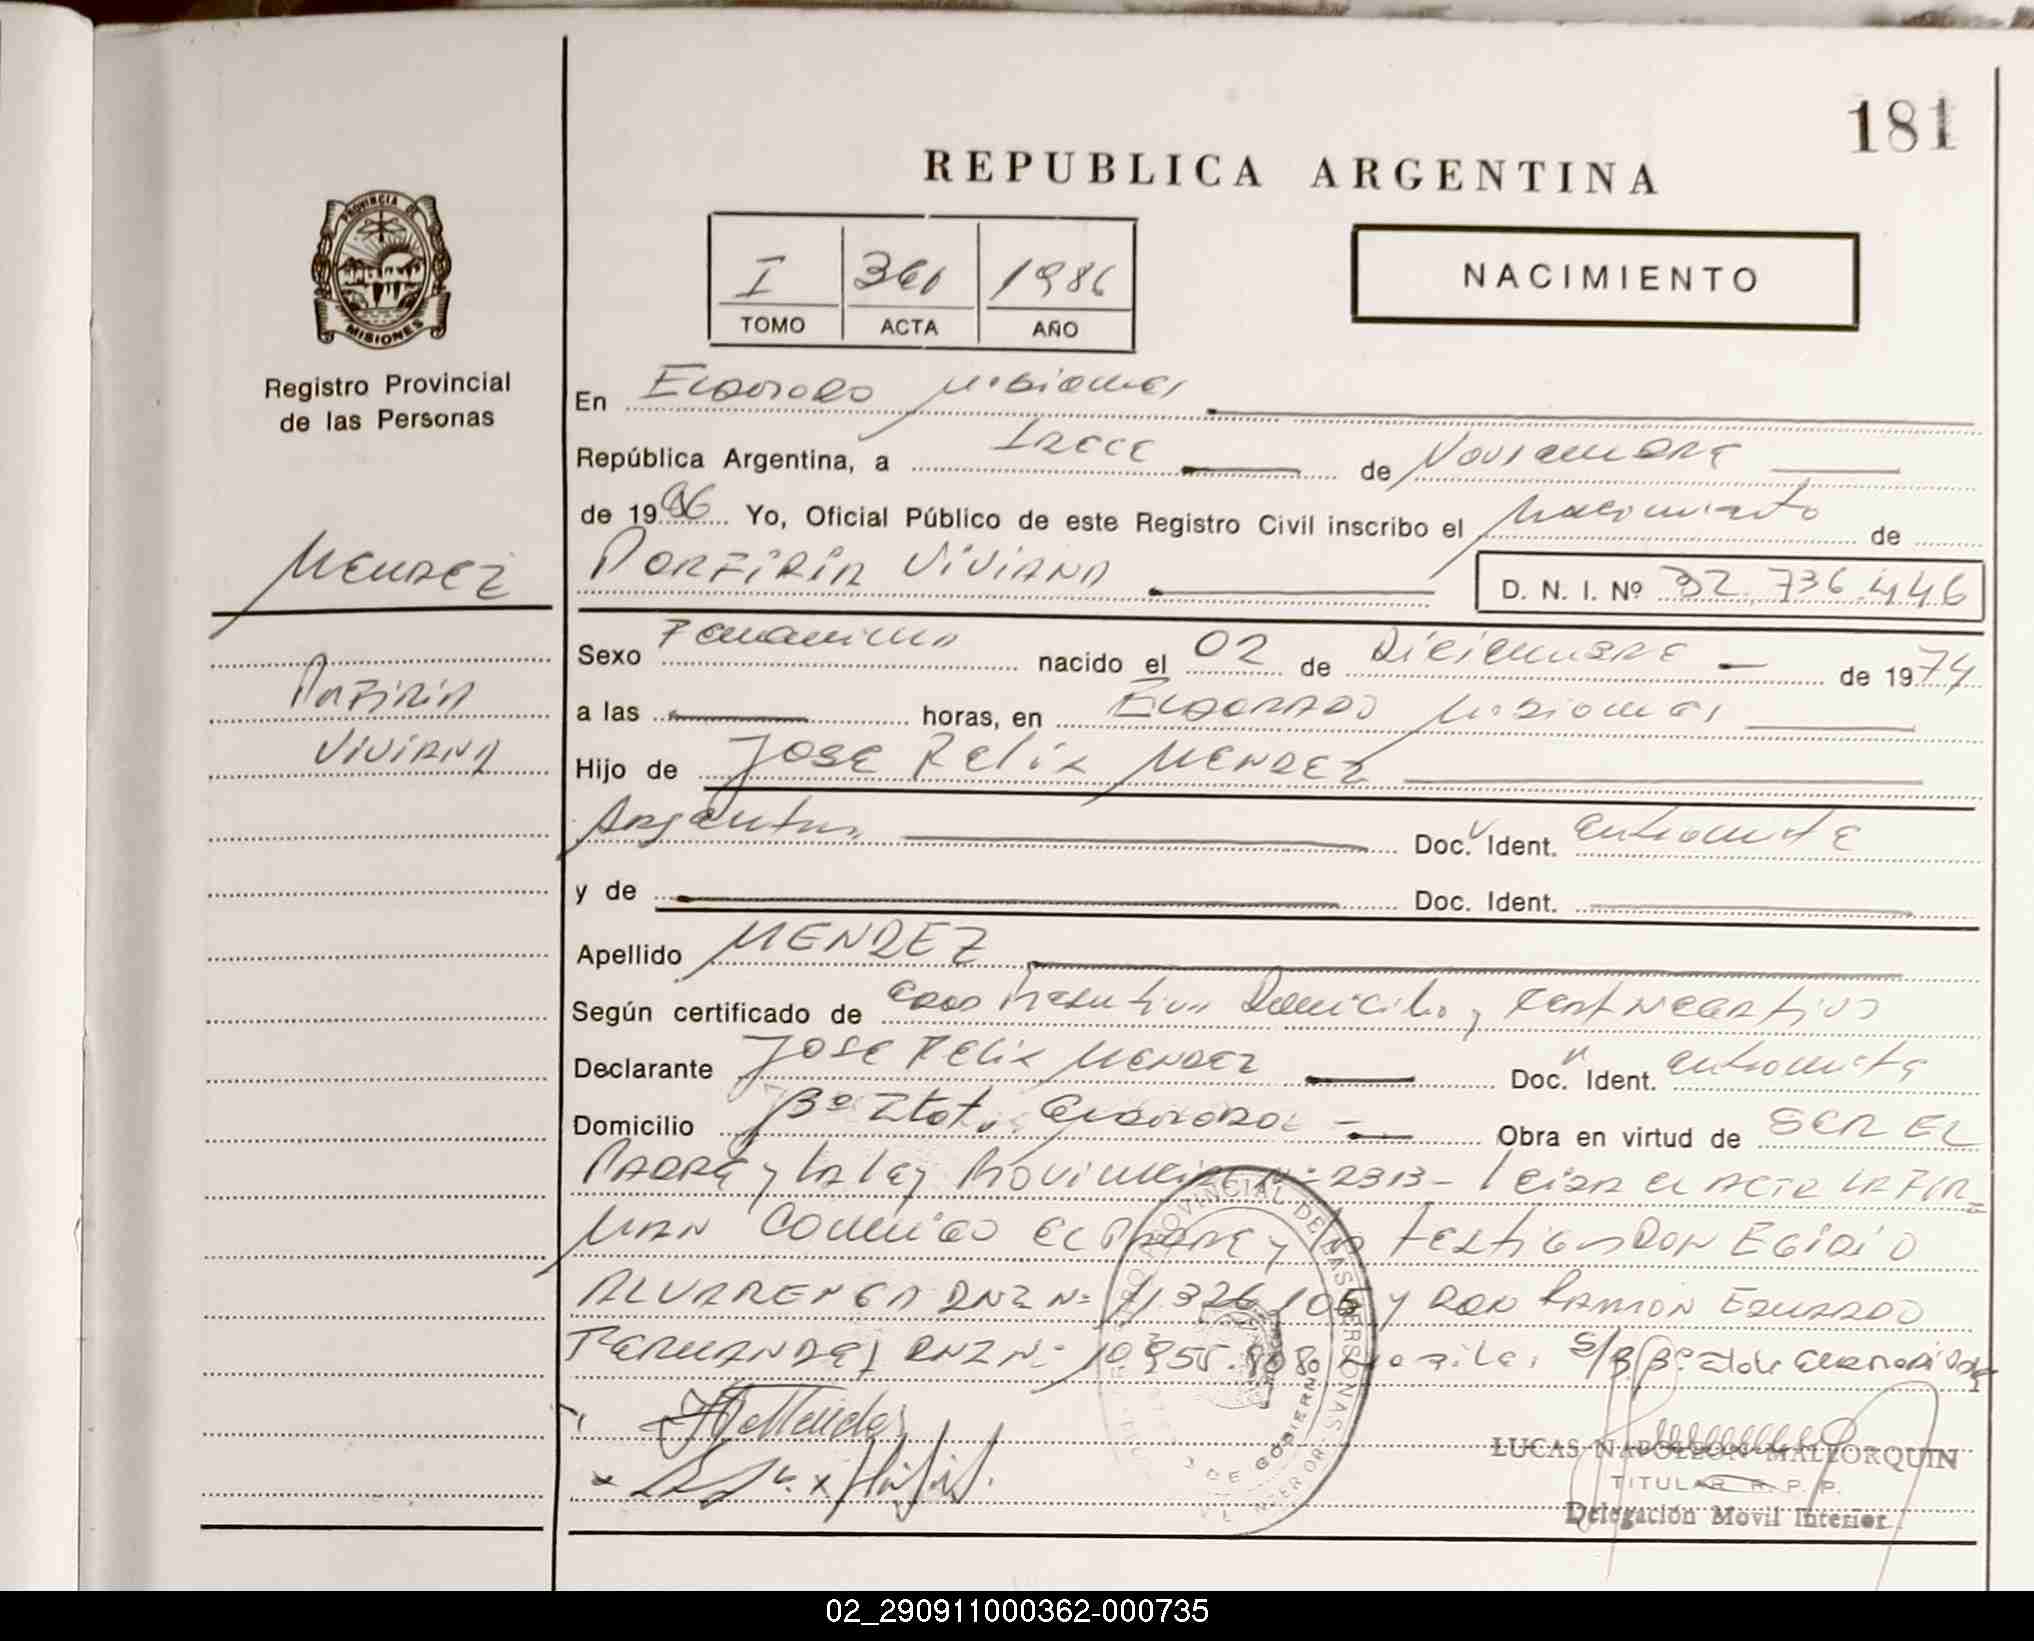 181
REPUBLICA ARGENTINA
PROVINCIA DE
MISIONES
Registro Provincial
de las Personas
I 1986
TOMO ACTA AÑO
NACIMIENTO
En ELDORADO Misiones
República Argentina, a TRECE de Noviembre
de 1986 Yo, Oficial Público de este Registro Civil inscribo el Nacimiento de
PORFIRIA VIVIANA
D. N. I. Nº 32.736.446
MENDEZ
PORFIRIA
VIVIANA
Sexo Femenino nacido el 02 de Diciembre de 1974
a las horas, en ELDORADO Misiones
Hijo de JOSE Felix MENDEZ
Argentino Doc. Ident.
y de Doc. Ident.
Apellido MENDEZ
Según certificado de Domicilio y Test Negativo
Declarante JOSE Felix MENDEZ Doc. Ident.
Domicilio Bº Obra en virtud de SER EL
PADRE y LA Ley Provincial Nº 2313 - Leida el ACTA LA FIR=
MAN CONMIGO EL PADRE y los Testigos DON EGIDIO
ALVARENGA DNI Nº 11.326.105 y DON RAMON EDUARDO
FERNANDEZ DNI Nº 10.955.808
LUCAS NAPOLEON MALLORQUIN
TITULAR R. P. P.
Delegación Movil Interior
02_290911000362-000735